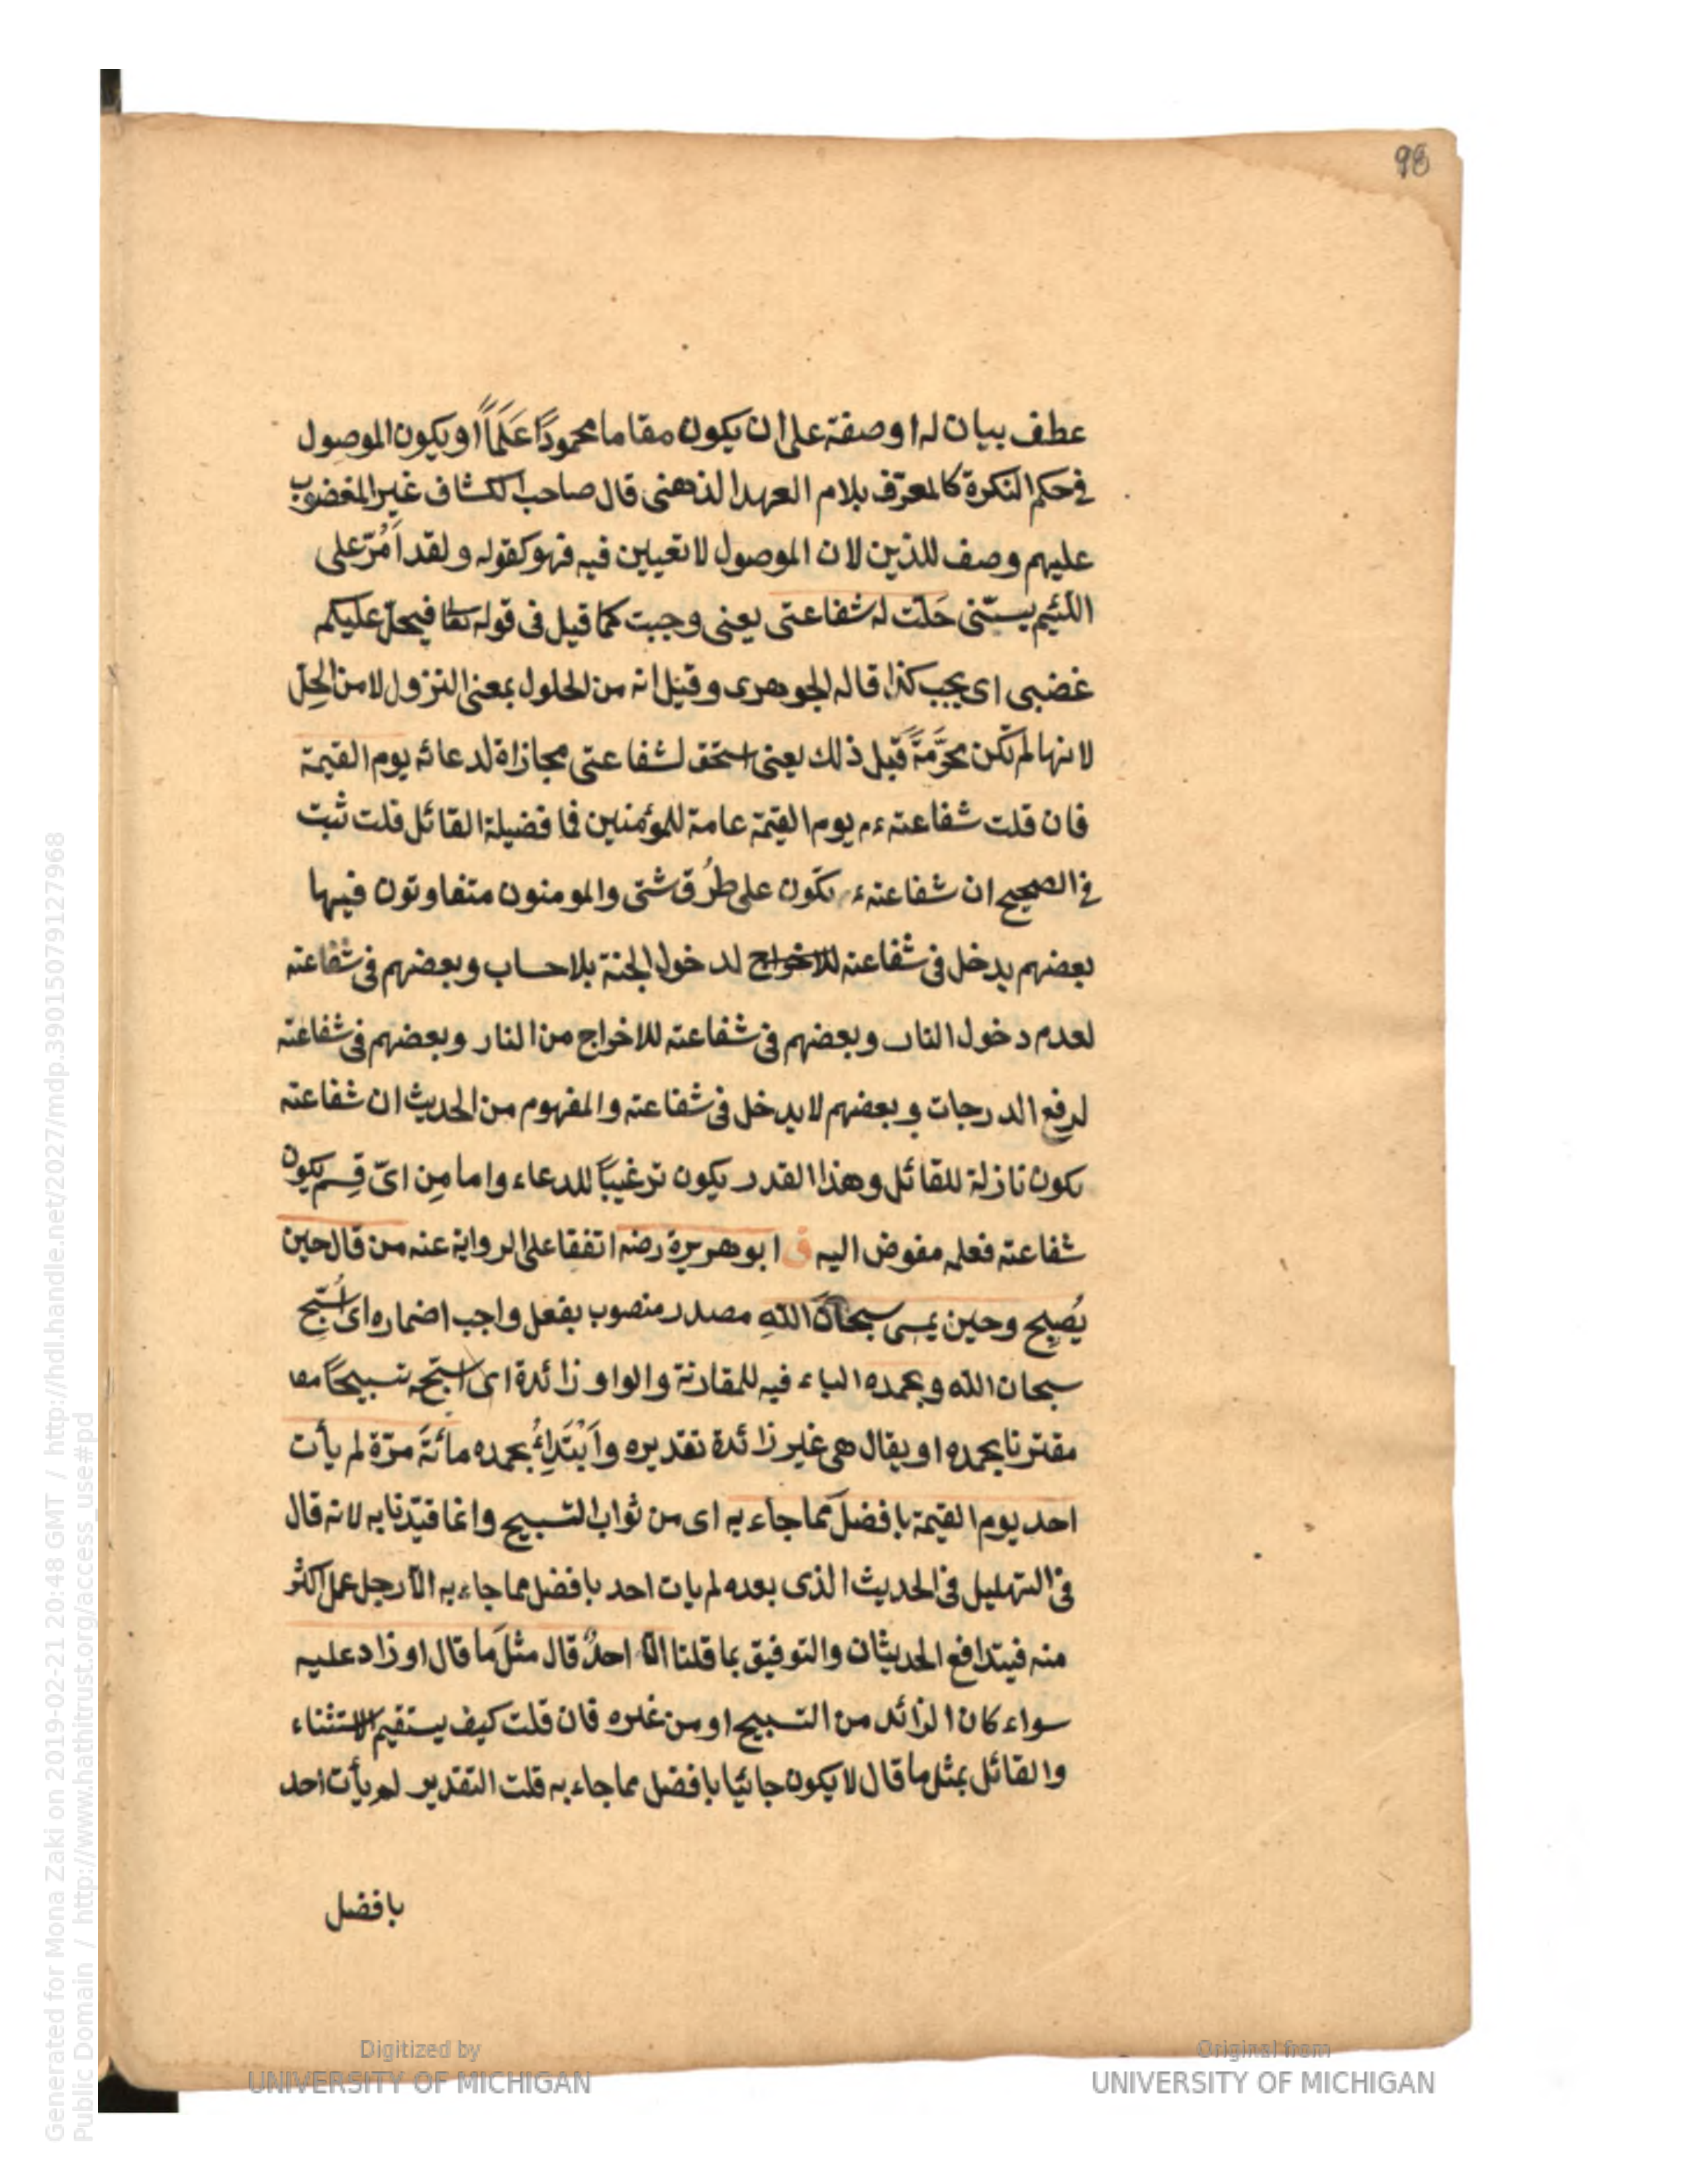 98
عطف بيان له او صفة على ان يكون مقاما محمودًا عَلَمًا او يكون الموصول
فى حكم النكرة كالمعرّف بلام العهد الذهنى قال صاحب الكشاف غير المغضوب
عليهم وصف للذين لان الموصول لا تعيين فيه فهو كقوله ولقد اَمُرّ على
اللئيم يسبّنى حَلّت له شفاعتى يعنى وجبت كما قيل فى قوله تعا فيحلّ عليكم
غضبى اى يجب كذا قاله الجوهرى وقيل انه من الحلول بمعنى النزول لا من الحِلّ
لانها لم تكن محرَّمَةً قبل ذلك يعنى استحق لشفاعتى مجازاة لدعائه يوم القيمة
فان قلت شفاعته ءم يوم القيمة عامة للمؤمنين فما فضيلة القائل قلت ثبت
فى الصحيح ان شفاعته ءم تكون على طُرُق شتى والمومنون متفاوتون فيها
بعضهم يدخل فى شفاعته للاخراج لدخول الجنة بلا حساب وبعضهم فى شفاعته
لعدم دخول النار وبعضهم فى شفاعته للاخراج من النار وبعضهم فى شفاعته
لرفع الدرجات وبعضهم لا يدخل فى شفاعته والمفهوم من الحديث ان شفاعته
تكون نازلة للقائل وهذا القدر يكون ترغيبًا للدعاء واما مِن اىّ قِسم يكون
شفاعته فعلمه مفوض اليه ق ابو هريرة رضه اتفقا على الرواية عنه من قال حين
يُصبِح وحين يمسى سبحانَ اللهِ مصدر منصوب بفعل واجب اضماره اى اُسَبّحِ
سبحان الله وبحمده الباء فيه للمقارنة والواو زائدة اى اسبّحه تسبيحًا معا
مقترنا بحمده او يقال هى غير زائدة تقديره واَبْتَدِاُ بحمده مائةَ مرّة لم يأت
احد يوم القيمة بافضلَ مما جاء به اى من ثواب التسبيح وانما قيّدنا به لانه قال
فى التهليل فى الحديث الذى بعده لم يات احد بافضل مما جاء به الّا رجل عمل اكثر
منه فيتدافع الحديثان والتوفيق بما قلنا الّا احدٌ قال مثلَ ما قال او زاد عليه
سواء كان الزائد من التسبيح او من غيره فان قلت كيف يستقيم الاستثناء
والقائل بمثل ما قال لا يكون جائيا بافضل مما جاء به قلت التقدير لم يأت احد
بافضل
Digitized by
UNIVERSITY OF MICHIGAN
Original from
UNIVERSITY OF MICHIGAN
Generated for Mona Zaki on 2019-02-21 20:48 GMT / http://hdl.handle.net/2027/mdp.39015079127968
Public Domain / http://www.hathitrust.org/access_use#pd